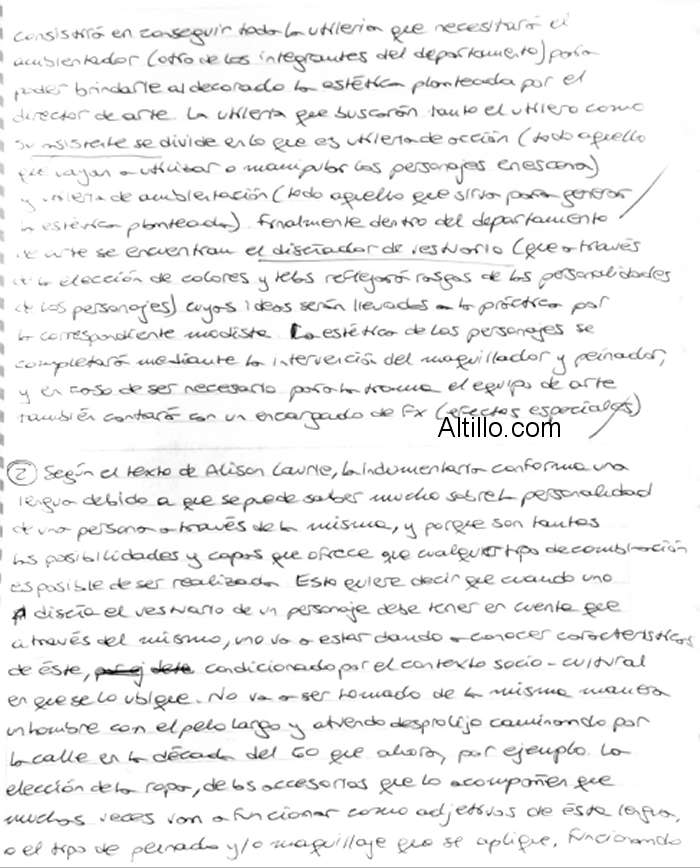 consistirá en conseguir toda la utileria que necesitará el
ambientador (otro de los integrantes del departamento) para
poder brindarle al decorado la estética planteada por el
director de arte. La utileria que buscarán tanto el utilero como
su asistente se divide en lo que es utileria de acción (todo aquello
que vayan a utilizar o manipular los personajes en escena)
y utileria de ambientación (todo aquello que sirva para generar
la estética planteada). Finalmente dentro del departamento
de arte se encuentran el diseñador de vestuario (que a través
de la elección de colores y telas reflejará rasgos de las personalidades
de los personajes) cuyas ideas serán llevadas a la práctica por
la correspondiente modista. La estética de los personajes se
completará mediante la intervención del maquillador y peinador,
y en caso de ser necesario para la trama el equipo de arte
también contará con un encargado de Fx (efectos especiales)
Altillo.com
2 Según el texto de Alison Laurie, la indumentaria conforma una
lengua debido a que se puede saber mucho sobre la personalidad
de una persona a través de la misma, y porque son tantas
las posibilidades y capas que ofrece que cualquier tipo de combinación
es posible de ser realizada. Esto quiere decir que cuando uno
diseña el vestuario de un personaje debe tener en cuenta que
a través del mismo, uno va a estar dando a conocer características
de éste, condicionado por el contexto socio-cultural
en que se lo ubique. No va a ser tomado de la misma manera
un hombre con el pelo largo y atuendo desprolijo caminando por
la calle en la década del 60 que ahora, por ejemplo. La
elección de la ropa, de los accesorios que lo acompañen que
muchas veces van a funcionar como adjetivos de ésta lengua,
o el tipo de peinado y/o maquillaje que se aplique, funcionando